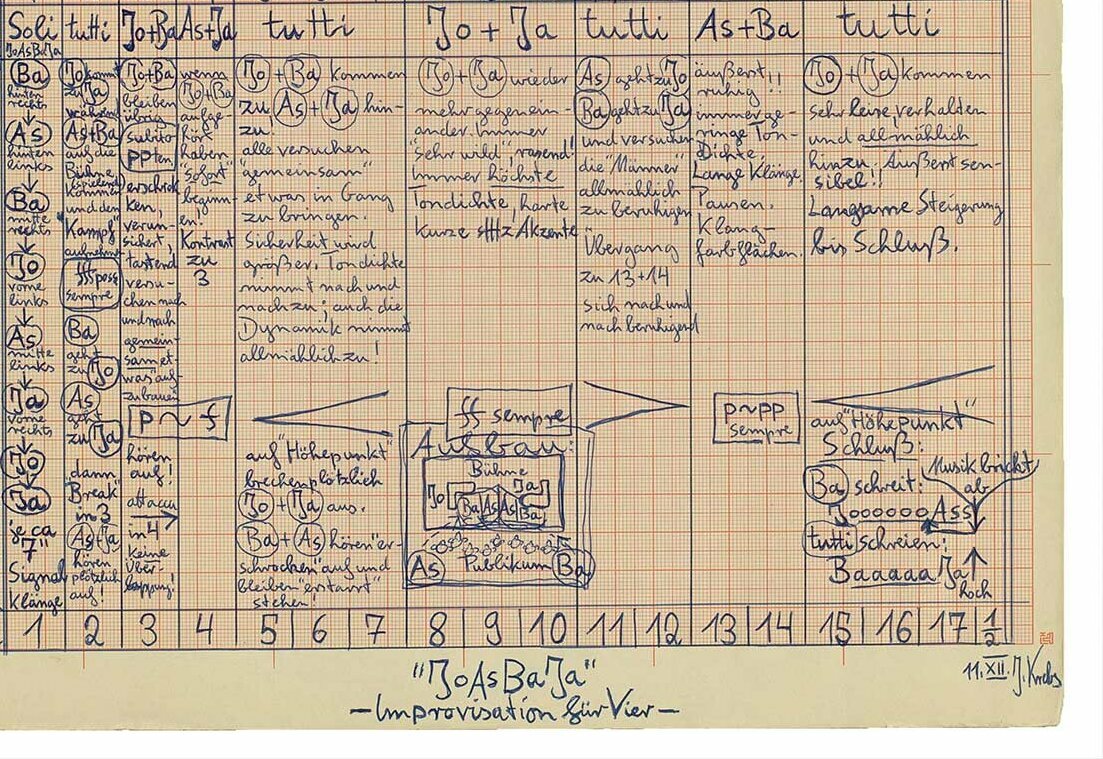 Soli
JoAsBaJa
Ba
hinten
rechts
As
hinten
links
Ba
mitte
rechts
Jo
vorne
links
As
mitte
links
Ja
vorne
rechts
Jo
Ja
je ca
7"
Signal
Klänge
tutti
Jo kommt
zu Ja
während
As+Ba
auf die
Bühne
spielend
kommen
und den
"Kampf"
aufnehmen
fff poss
sempre
Ba
geht
zu Jo
As
geht
zu Ja
dann
"Break"
in 3
As+Ja
hören
plötzlich
auf!
Jo+Ba
Jo+Ba
bleiben
übrig
subito
pp ten.
erschrok
ken,
verun-
sichert,
tastend
versu-
chen nach
und nach
gemein-
sam et-
was auf-
zubauen
p ~ f
hören
auf!
attacca
in 4
keine
Über-
lappung!
As+Ja
wenn
Jo+Ba
aufge-
hört
haben
"sofort"
beginn-
en!
Kontrast
zu
3
tutti
Jo + Ba kommen
zu As + Ja hin-
zu.
alle versuchen
"gemeinsam"
etwas in Gang
zu bringen.
Sicherheit wird
größer, Tondichte
nimmt nach und
nach zu; auch die
Dynamik nimmt
allmählich zu!
auf "Höhepunkt"
brechen plötzlich
Jo + Ja aus.
Ba + As hören "er-
schrocken" auf und
bleiben "erstarrt"
stehen!
Jo + Ja
Jo + Ja wieder
mehr gegenein-
ander. Immer
"sehr wild", rasend!
Immer höchste
Tondichte, harte
kurze sffz Akzente
ff sempre
Aufbau:
Bühne
Jo Ja
Ba As As Ba
As Publikum Ba
tutti
As geht zu Jo
Ba geht zu Ja
und versuchen
die "Männer"
allmählich
zu beruhigen
Übergang
zu 13+14
sich nach und
nach beruhigend
As+Ba
äußerst!!
ruhig!
immer ge-
ringe Ton-
Dichte,
Lange Klänge,
Pausen.
Klang-
farbflächen.
p~pp
sempre
tutti
Jo + Ja kommen
sehr leise, verhalten
und allmählich
hinzu. Äußerst sen-
sibel!!
Langsame Steigerung
bis Schluß.
auf "Höhepunkt"
Schluß:
Musik bricht
ab
Ba schreit:
Joooooo Ass
tutti schreien:
Baaaaa Ja
hoch
1 2 3 4 5 6 7 8 9 10 11 12 13 14 15 16 17 1/2
11. XII. J. Krebs
"JoAsBaJa"
-Improvisation für Vier-